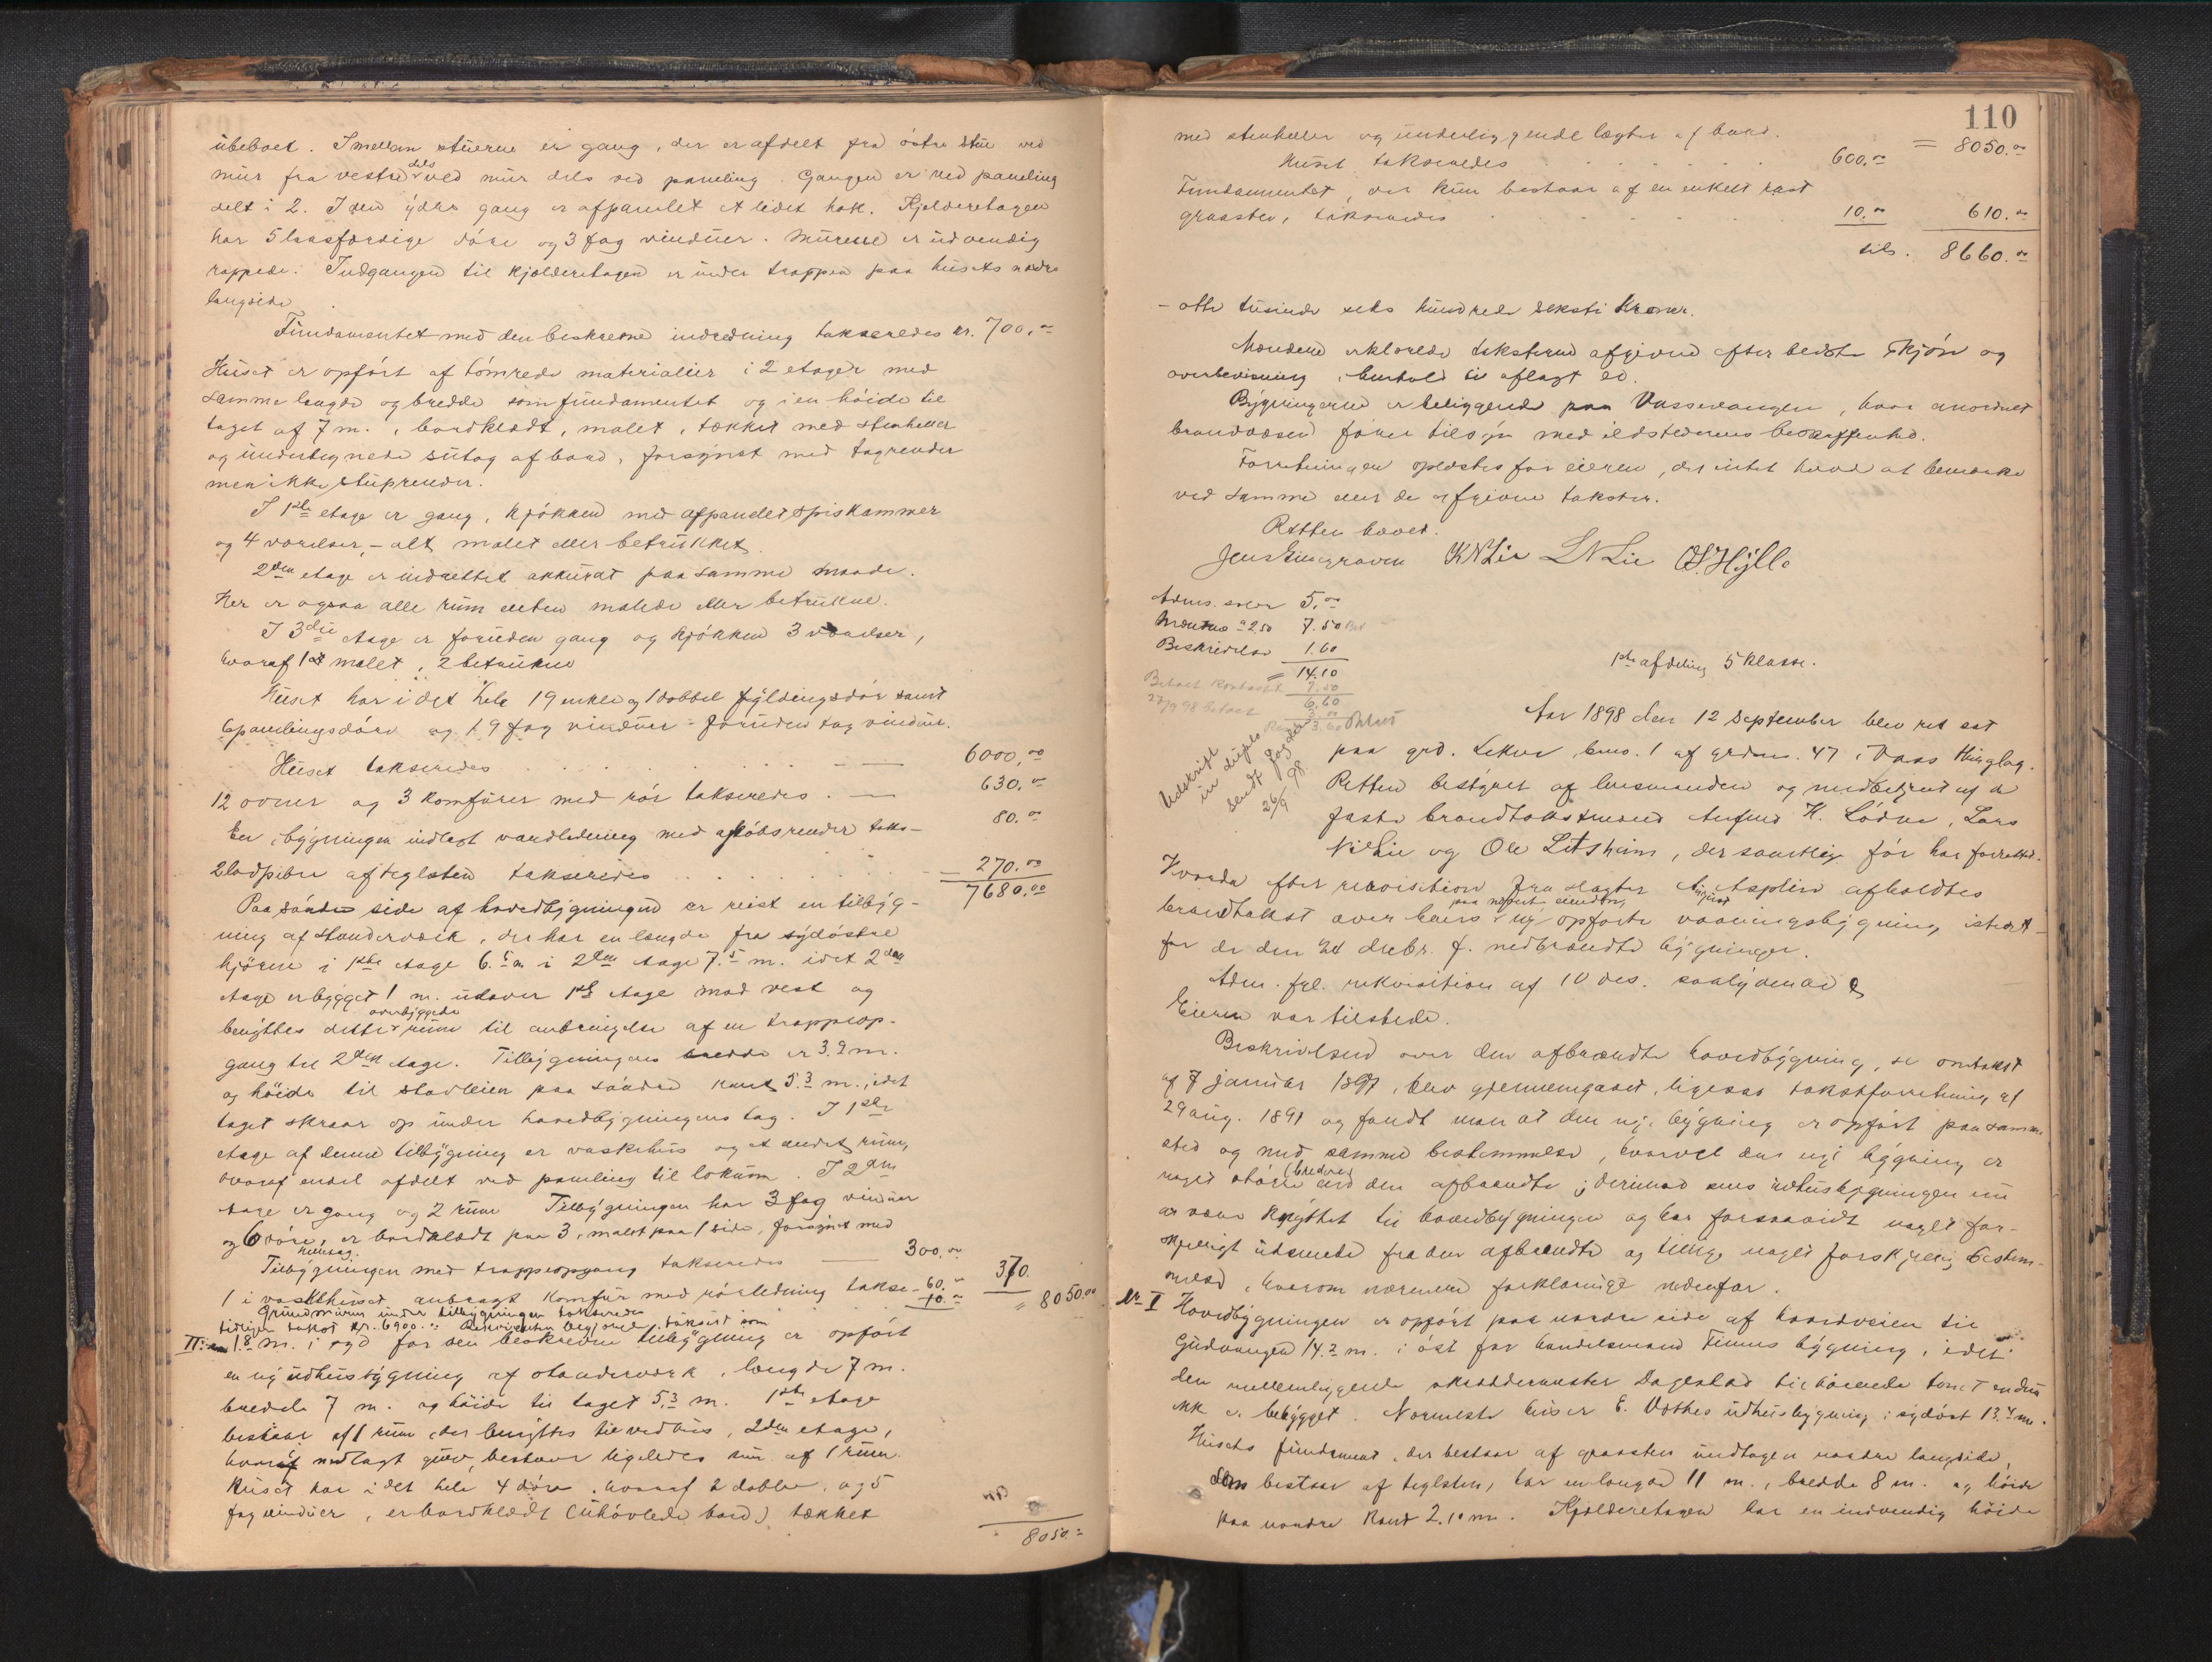 übeboet. Imellem stuerne er gang, der er afdelt fra østre stue ved
mür fra vestre dels ved mür dels ved paneling. Gangen er ved paneling
delt i 2. I den ydre gang er afpanelet et lidet kot. Kjelderetagen
har 5 laasfærdige døre og 3 fag vinduer. Mürene er udvendig
rappede. Indgangen til kjelderetagen er under trappen paa husets nordre
langside.
Fundamentet med den beskrevne indredning takseredes kr. 700.00
Huset er opført af tømrede materialier i 2 etager med
samme længde og bredde som fundamentet og i en høide til
taget af 7 m., bordklædt, malet, tækket med stenheller
og undertegnede sutag af bord, forsynet med tagrender
men ikke stuprender.
I 1ste etage er gang, kjøkken med afpanelet spiskammer
og 4 værelser, - alt malet eller betrukket.
2den etage er indrettet akkurat paa samme maade.
Her er ogsaa alle rum enten malede eller betrukne.
I 3die etage er foruden gang og kjøkken 3 værelser,
hvoraf 1 er malet, 2 betrukne
Huset har i det hele 19 enkle og 1 dobbel fyldingsdør samt
6 panelingsdøre og 19 fag vinduer foruden tag vinduer.
Huset takseredes 6000,00
12 ovner og 3 komfürer med rør takseredes. 630.00
En i bygningen indlagt vandledning med afløbsrender taks- 80.00
2 ladpiber af teglsten takseredes 270.00
7680.00
Paa søndre side af hovedbygningen er reist en tilbyg-
ning af standerværk, der har en længde fra sydøstre
hjørne i 1ste etage 6.5 m i 2den etage 7.5 m. idet 2den
etage er bygget 1 m. udover 1ste etage mod vest og
benyttes dette overbyggede rum til anbringelse af en trappeop-
gang til 2den etage. Tilbygningens bredde er 3.9 m.
og høide til stavleien paa søndre kant 5.3 m., idet
taget skraar op under hovedbygningens tag. I 1ste
etage af denne tilbygning er vaskehus og et andet rum,
hvoraf endel afdelt ved paneling til lokum. I 2den
etage er gang og 2 rum Tilbygningen har 3 fag vinduer
og 6 døre, er bordklædt paa 3, malet paa 1 side, forsynet med
Tilbygningen med trappeopgang takseredes 300.00
1 i vaskehuset anbragt komfür med rørledning takse- 60.00 370.
Grundmuren under tilbygningen takseredes 10.00 = 8050.00
tidligere takst kr. 6900.00 Rekvirenten begjærede takseret som
II: 1.8 m. i syd for den beskrevne tilbygning er opført
en ny udhusbygning af standerværk, længde 7 m.
bredde 7 m. og høide til taget 5.3 m. 1ste etage
bestaar af 1 rum, der benyttes til vedhus, 2den etage,
hvoraf nedlagt gulv, bestaar ligeledes kun af 1 rum.
Huset har i det hele 4 døre, hvoraf 2 doble, og 5
fag vinduer, er bordklædt (uhøvlede bord) tækket
8050.
110
med stenheller og underliggende lægter af bord. = 8050.00
Huset takseredes 600.00
Fundamentet, der kun bestaar af en enkelt rast
graasten, takseredes 10.00 610.00
tils. 8660.00
- otte tusinde seks hundrede seksti kroner.
Mændene erklærede taksterne afgivne efter bedste skjøn og
overbevisning i henhold til aflagt ed.
Bygningerne er beliggende paa Vossevangen, hvor anordnet
brandvæsen fører tilsyn med ildstedernes beskaffenhed.
Forretningen oplæstes for eieren, der intet havde at bemærke
ved samme eller de afgivne takster.
Retten hævet.
K N Lie L N Lie O. Hylle
Adms. salær 5.00
Mændene a 2.50 7.50
Beskrivelse 1.60
= 14.10
7.50
6.60
27/9 98 betalt
1ste afdeling 5 klasse.
Udskrift
in duplo
sendt fogden
26/9 98.
Aar 1898 den 12 September blev ret sat
paa grd. Lekve, bno. 1 af gardno. 47 i Voss thinglag.
Retten bestyret af lensmanden og medbetjent af de
faste brandtakstmænd Anfind K. Lødve, Lars
N. Lie og Ole Litsheim, der samtlige før har forrettet.
Hvorda efter rekvisition fra slagter A. Asplin afholdtes
brandtakst over hans paa nævnte eiendom nyopførte vaaningsbygning istedet-
for de den 24 decbr. f. nedbrændte bygninger.
Adm. frl. rekvisition af 10 ds. saalydende
Eieren var tilstede.
Beskrivelsen over den afbrændte hovedbygning, se omtakst
af 7 januar 1897, blev gjennemgaaet, ligesaa takstforretning af
29 aug. 1891 og fandt man at den nye bygning er opført paa samme
sted og med samme bestemmelse, hvorvel den nye bygning er
noget større (bredere) end den afbrændte; derimod sees udhusbygningen nu
at være knyttet til hovedbygningen og har forsaavidt noget for-
skjelligt udseende fra den afbrændte og tillige noget forskjellig bestem-
melse, hvorom nærmere forklaring nedenfor.
No I Hovedbygningen er opført paa nordre side af hovedveien til
Gudvangen 14.2 m. i øst for handelsmand Finnes bygning, idet
den mellemliggende skræddermester Dagestad tilhørende tomt endnu
ikke er bebygget. Nærmeste hus er E. Vethes udhusbygning i sydøst 13.4 m.
Husets fundament, der bestaar af graasten undtagen nordre langside,
som bestaar af teglsten, har en længde 11 m., bredde 8 m. og høide
paa nordre kant 2.10 m. Kjelderetagen har en indvendig høide